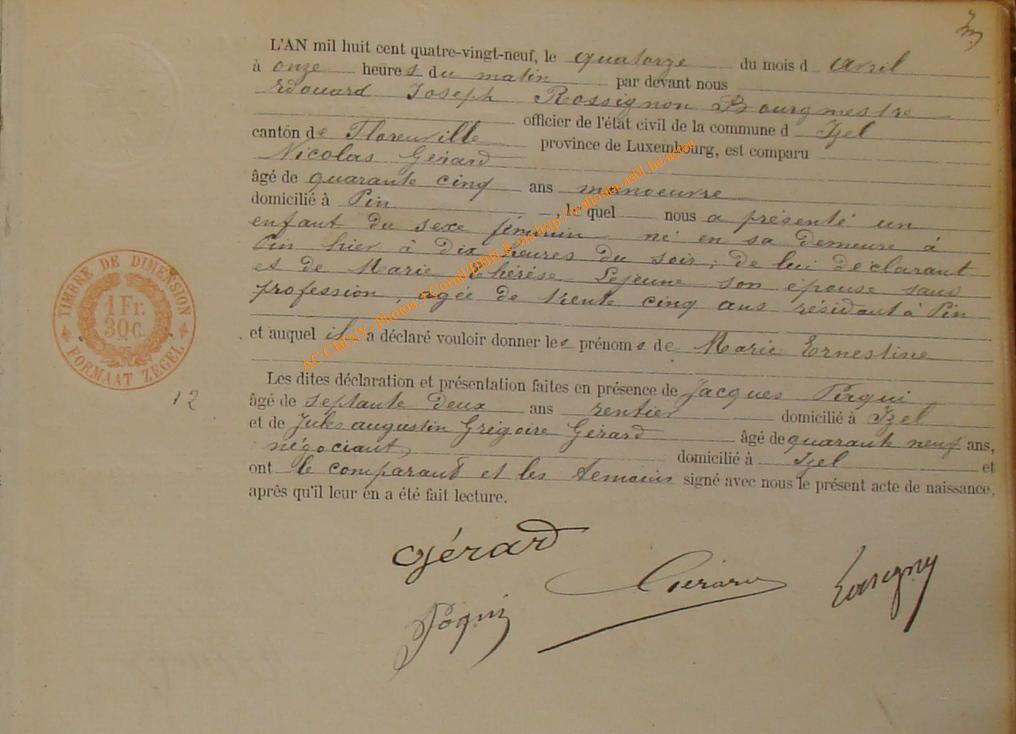 L'AN mil huit cent quatre-vingt-neuf, le quatorze du mois d Avril
à onze heures du matin par devant nous
Edouard Joseph Rossignon Bourgmestre
officier de l'état civil de la commune d Izel
canton de Florenville province de Luxembourg, est comparu
Nicolas Gérard
âgé de quarante cinq ans manoeuvre
domicilié à Pin , le quel nous a présenté un
enfant du sexe féminin né en sa demeure à
Pin hier à dix heures du soir, de lui déclarant
et de Marie Thérèse Lejeune son épouse sans
profession, agée de trente cinq ans résidant à Pin
et auquel il a déclaré vouloir donner les prénoms de Marie Ernestine
Les dites déclaration et présentation faites en présence de Jacques
âgé de septante deux ans rentier domicilié à Izel
et de Jules augustin Grégoire Gérard âgé de quarante neuf ans,
négociant, domicilié à Izel et
ont le comparant et les temoins signé avec nous le présent acte de naissance,
après qu'il leur en a été fait lecture.
TIMBRE DE DIMENSION
1 Fr.
30 C.
FORMAAT ZEGEL
12
Gérard
Gérard